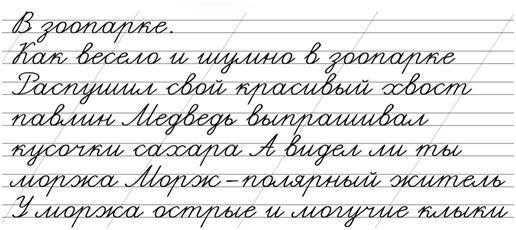 В зоопарке.
Как весело и шумно в зоопарке
Распушил свой красивый хвост
павлин Медведь выпрашивал
кусочки сахара А видел ли ты
моржа Морж – полярный житель
У моржа острые и могучие клыки